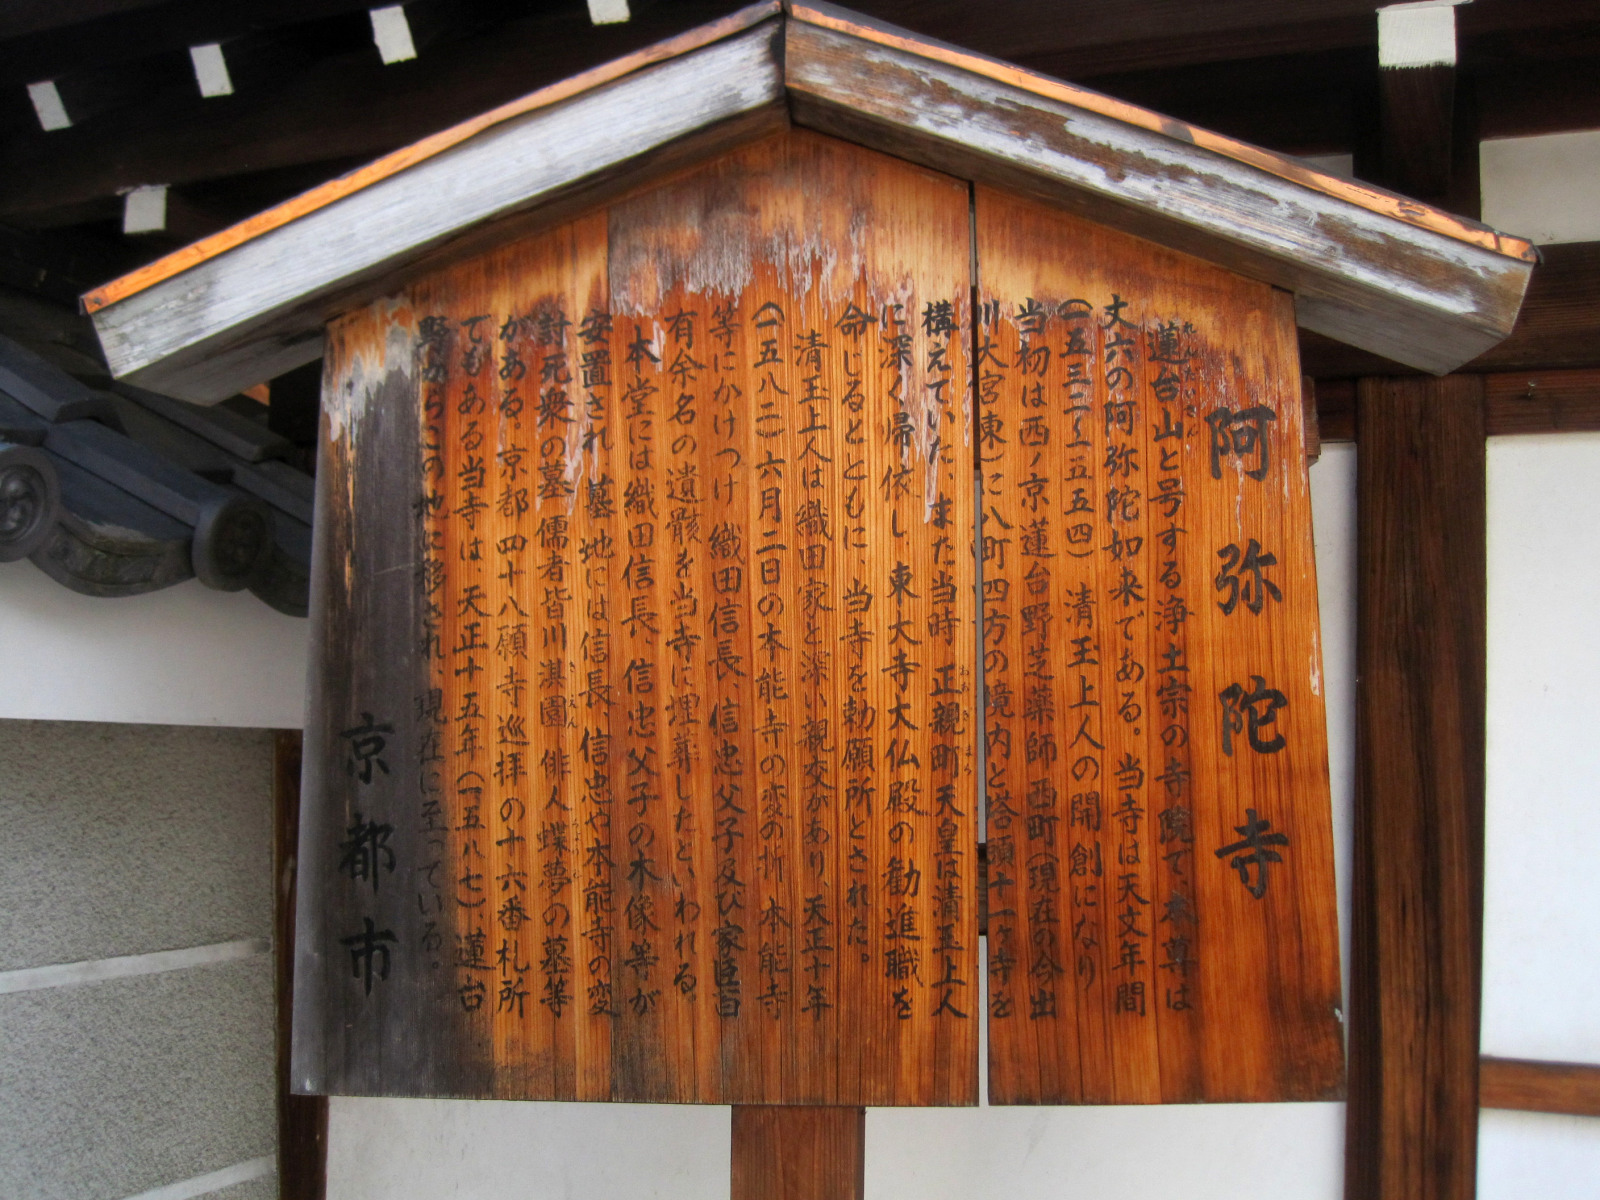 阿弥陀寺
蓮台山と号する浄土宗の寺院で、本尊は
丈六の阿弥陀如来である。当寺は天文年間
(一五三二〜一五五四)清玉上人の開創になり
当初は西ノ京蓮台野芝薬師西町(現在の今出
川大宮東)に八町四方の境内と塔頭十一ヶ寺を
構えていた。また当時正親町天皇は清玉上人
に深く帰依し、東大寺大仏殿の勧進職を
命じるとともに、当寺を勅願所とされた。
清玉上人は織田家と深い親交があり、天正十年
(一五八二)六月二日の本能寺の変の折 本能寺
等にかけつけ織田信長、信忠父子及び家臣百
有余名の遺骸を当寺に埋葬したといわれる。
本堂には織田信長、信忠父子の木像等が
安置され、墓地には信長、信忠や本能寺の変
討死衆の墓、儒者皆川淇園、俳人蝶夢の墓等
がある。京都四十八願寺巡拝の十六番札所
でもある当寺は、天正十五年(一五八七)、蓮台
野からこの地に移され、現在に至っている。
京都市